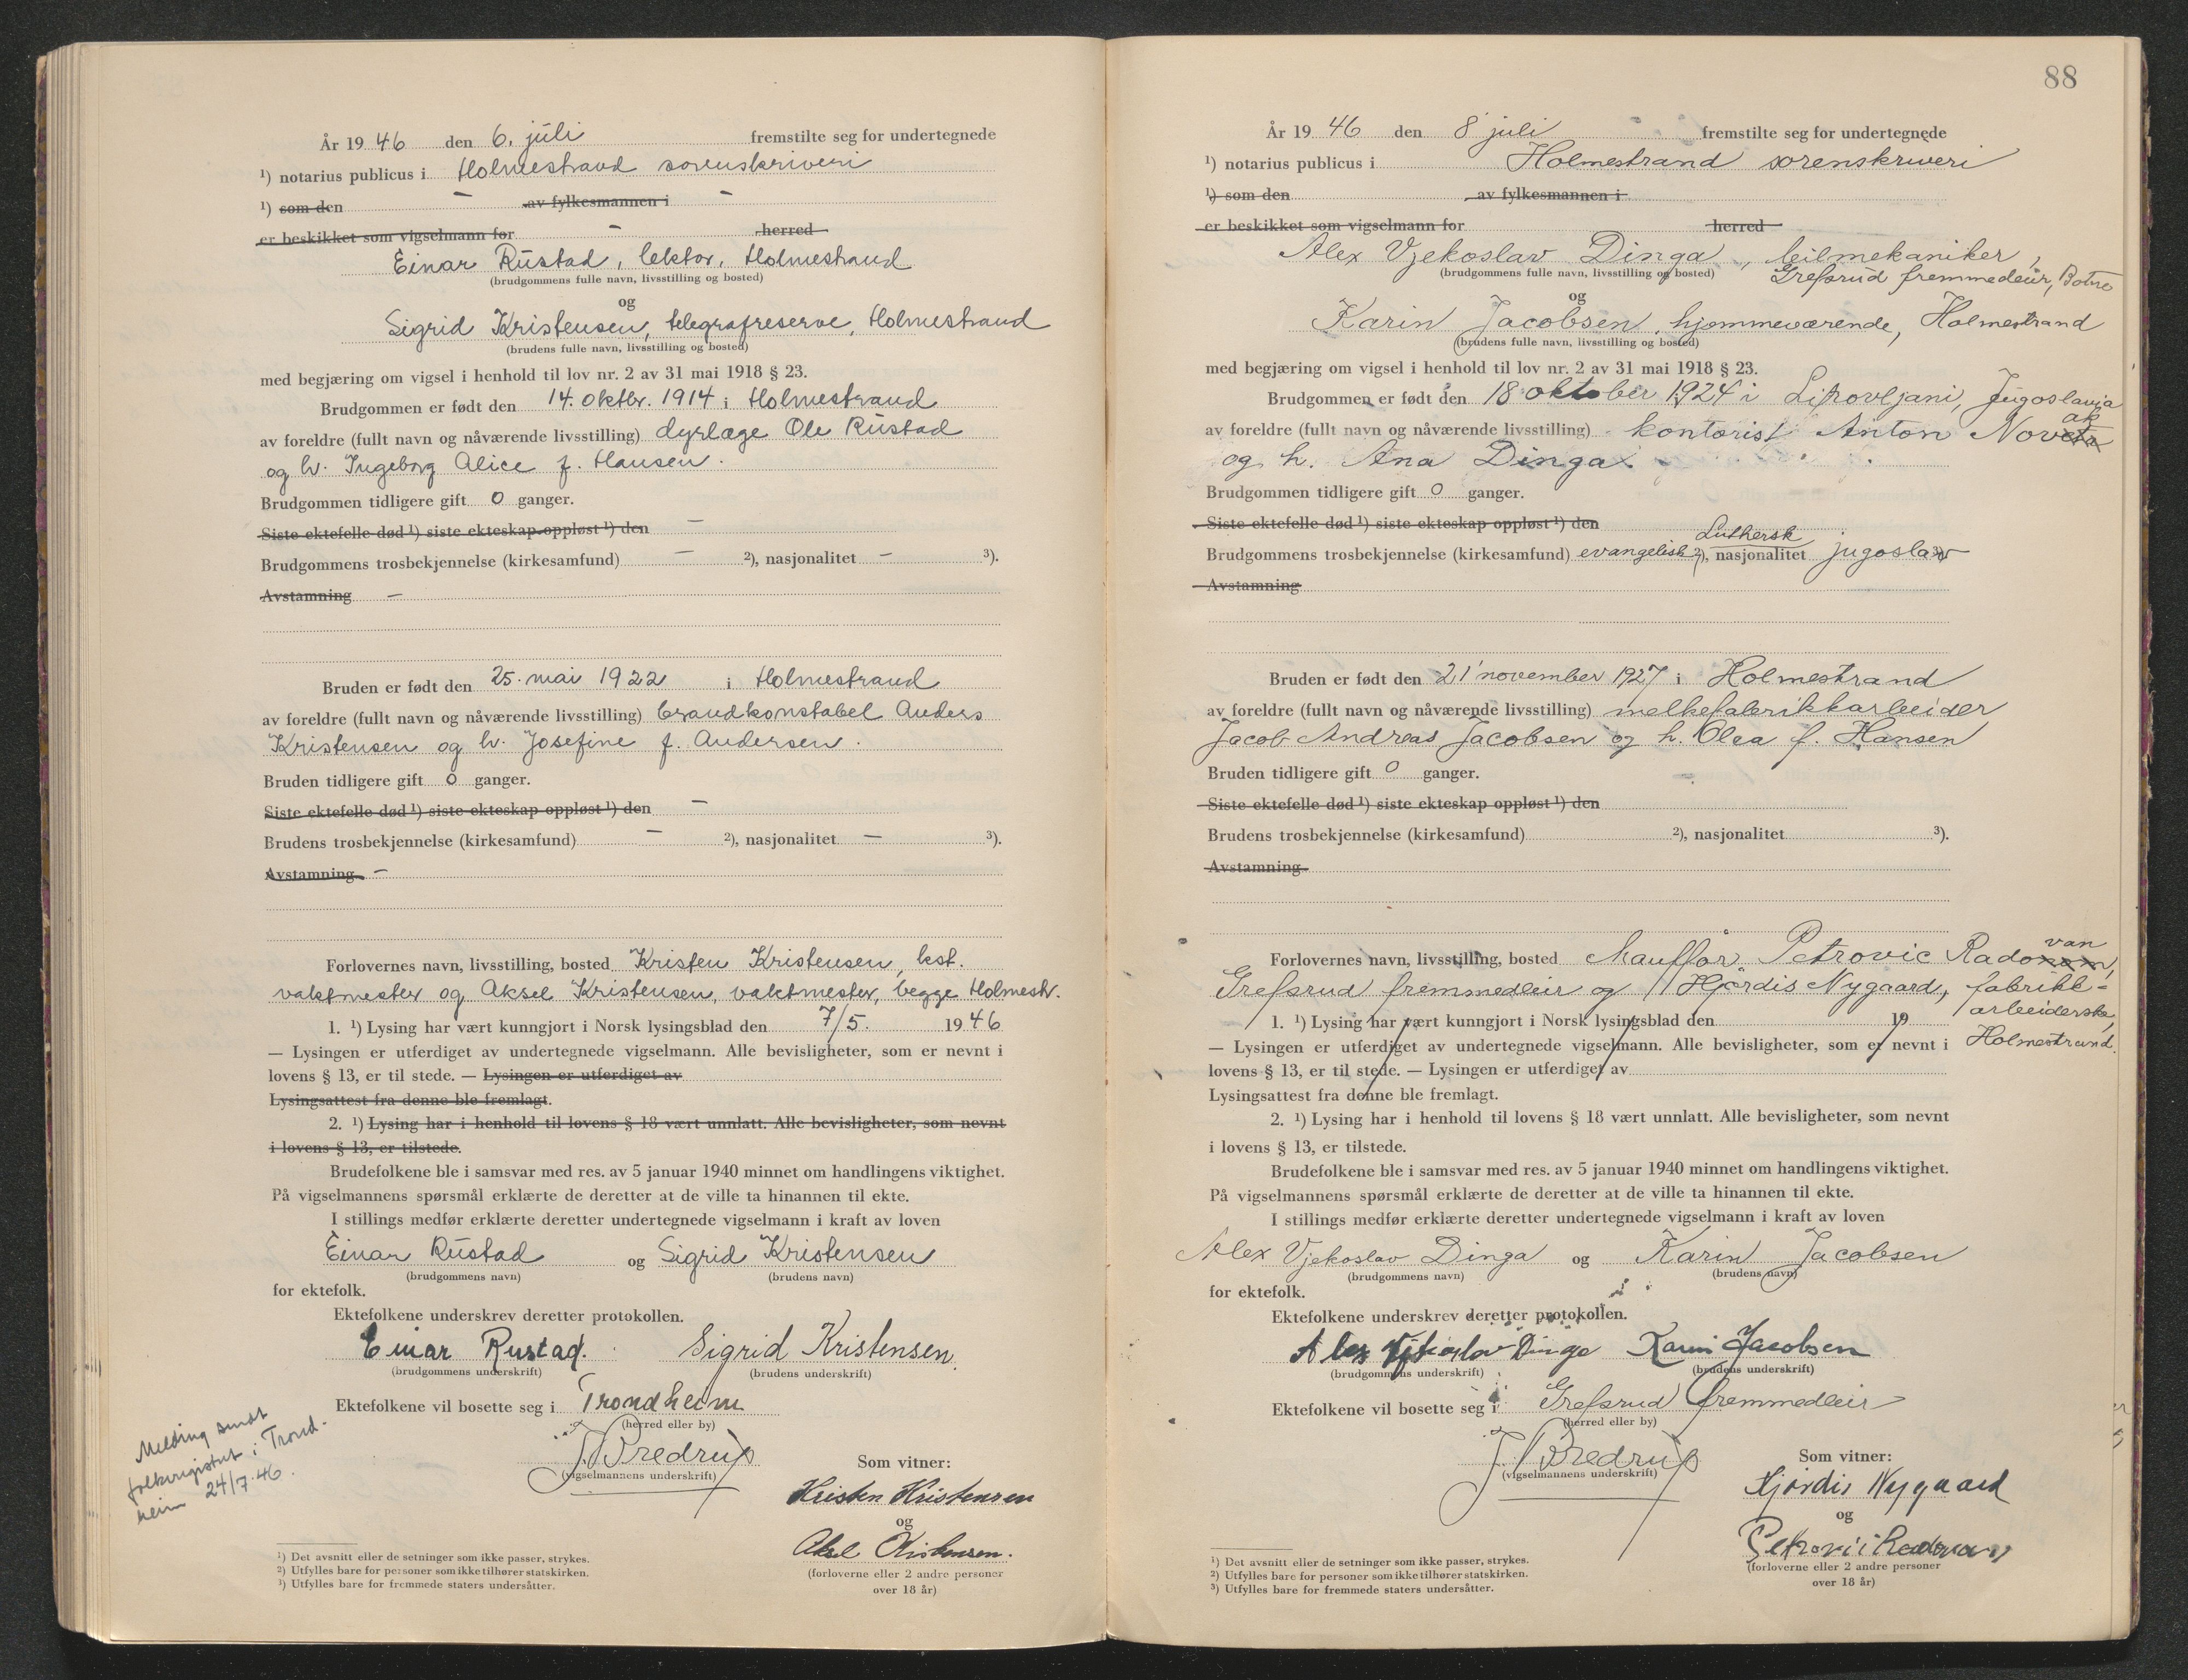 År 1946 den 6. juli fremstilte seg for undertegnede
¹) notarius publicus i Holmestrand sorenskriveri
¹) som den – av fylkesmannen i –
er beskikket som vigselmann for – herred
Einar Rustad, lektor, Holmestrand
(brudgommens fulle navn, livsstilling og bosted)
og
Sigrid Kristensen, telegrafreserve, Holmestrand
(brudens fulle navn, livsstilling og bosted)
med begjæring om vigsel i henhold til lov nr. 2 av 31 mai 1918 § 23.
Brudgommen er født den 14. oktbr. 1914 i Holmestrand
av foreldre (fullt navn og nåværende livsstilling) dyrlæge Ole Rustad
og h. Ingeborg Alice f. Hansen.
Brudgommen tidligere gift 0 ganger.
Siste ektefelle død ¹) siste ekteskap oppløst ¹) den –
Brudgommens trosbekjennelse (kirkesamfund) – ²), nasjonalitet – ³).
Avstamning –
Bruden er født den 25. mai 1922 i Holmestrand
av foreldre (fullt navn og nåværende livsstilling) brandkonstabel Anders
Kristensen og h. Josefine f. Andersen.
Bruden tidligere gift 0 ganger.
Siste ektefelle død ¹) siste ekteskap oppløst ¹) den –
Brudens trosbekjennelse (kirkesamfund) – ²), nasjonalitet – ³).
Avstamning –
Forlovernes navn, livsstilling, bosted Kristen Kristensen, bst.
vaktmester og Aksel Kristensen, vaktmester, begge Holmestr.
1. ¹) Lysing har vært kunngjort i Norsk lysingsblad den 7/5. 1946
— Lysingen er utferdiget av undertegnede vigselmann. Alle bevisligheter, som er nevnt i
lovens § 13, er til stede. — Lysingen er utferdiget av
Lysingsattest fra denne ble fremlagt.
2. ¹) Lysing har i henhold til lovens § 18 vært unnlatt. Alle bevisligheter, som nevnt
i lovens § 13, er tilstede.
Brudefolkene ble i samsvar med res. av 5 januar 1940 minnet om handlingens viktighet.
På vigselmannens spørsmål erklærte de deretter at de ville ta hinannen til ekte.
I stillings medfør erklærte deretter undertegnede vigselmann i kraft av loven
Einar Rustad og Sigrid Kristensen
(brudgommens navn) (brudens navn)
for ektefolk.
Ektefolkene underskrev deretter protokollen.
Einar Rustad. Sigrid Kristensen.
(brudgommens underskrift) (brudens underskrift)
Ektefolkene vil bosette seg i Trondheim
(herred eller by)
J. Bredrup
(vigselmannens underskrift)
Som vitner:
Kristen Kristensen
og
Aksel Kristensen.
(forloverne eller 2 andre personer
over 18 år)
Melding sendt
folkeregistret i Trond-
heim 24/7.46.
¹) Det avsnitt eller de setninger som ikke passer, strykes.
²) Utfylles bare for personer som ikke tilhører statskirken.
³) Utfylles bare for fremmede staters undersåtter.
88
År 1946 den 8' juli fremstilte seg for undertegnede
¹) notarius publicus i Holmestrand sorenskriveri
¹) som den av fylkesmannen i
er beskikket som vigselmann for herred
Alex Vjekoslav Dinga, bilmekaniker,
(brudgommens fulle navn, livsstilling og bosted) Grefsrud fremmedleir, Botne
og
Karin Jacobsen, hjemmeværende, Holmestrand
(brudens fulle navn, livsstilling og bosted)
med begjæring om vigsel i henhold til lov nr. 2 av 31 mai 1918 § 23.
Brudgommen er født den 18 oktober 1924 i Lipovljani, Jugoslavia
av foreldre (fullt navn og nåværende livsstilling) kontorist Anton Novak
og h. Ana Dinga.
Brudgommen tidligere gift 0 ganger.
Siste ektefelle død ¹) siste ekteskap oppløst ¹) den
Luthersk
Brudgommens trosbekjennelse (kirkesamfund) evangelisk ²), nasjonalitet jugoslav ³).
Avstamning
Bruden er født den 21' november 1927 i Holmestrand
av foreldre (fullt navn og nåværende livsstilling) melkefabrikkarbeider
Jacob Andreas Jacobsen og h. Olea f. Hansen
Bruden tidligere gift 0 ganger.
Siste ektefelle død ¹) siste ekteskap oppløst ¹) den
Brudens trosbekjennelse (kirkesamfund) ²), nasjonalitet ³).
Avstamning
Forlovernes navn, livsstilling, bosted chauffør Petrovic Radovan,
Grefsrud fremmedleir og Hjørdis Nygaard, fabrikk-
arbeiderske,
Holmestrand.
1. ¹) Lysing har vært kunngjort i Norsk lysingsblad den 19
— Lysingen er utferdiget av undertegnede vigselmann. Alle bevisligheter, som er nevnt i
lovens § 13, er til stede. — Lysingen er utferdiget av
Lysingsattest fra denne ble fremlagt.
2. ¹) Lysing har i henhold til lovens § 18 vært unnlatt. Alle bevisligheter, som nevnt
i lovens § 13, er tilstede.
Brudefolkene ble i samsvar med res. av 5 januar 1940 minnet om handlingens viktighet.
På vigselmannens spørsmål erklærte de deretter at de ville ta hinannen til ekte.
I stillings medfør erklærte deretter undertegnede vigselmann i kraft av loven
Alex Vjekoslav Dinga og Karin Jacobsen
(brudgommens navn) (brudens navn)
for ektefolk.
Ektefolkene underskrev deretter protokollen.
Alex Vjekoslav Dinga Karin Jacobsen
(brudgommens underskrift) (brudens underskrift)
Ektefolkene vil bosette seg i Grefsrud fremmedleir
(herred eller by)
J. Bredrup
(vigselmannens underskrift)
Som vitner:
Hjørdis Nygaard
og
Petrović Radovan
(forloverne eller 2 andre personer
over 18 år)
¹) Det avsnitt eller de setninger som ikke passer, strykes.
²) Utfylles bare for personer som ikke tilhører statskirken.
³) Utfylles bare for fremmede staters undersåtter.